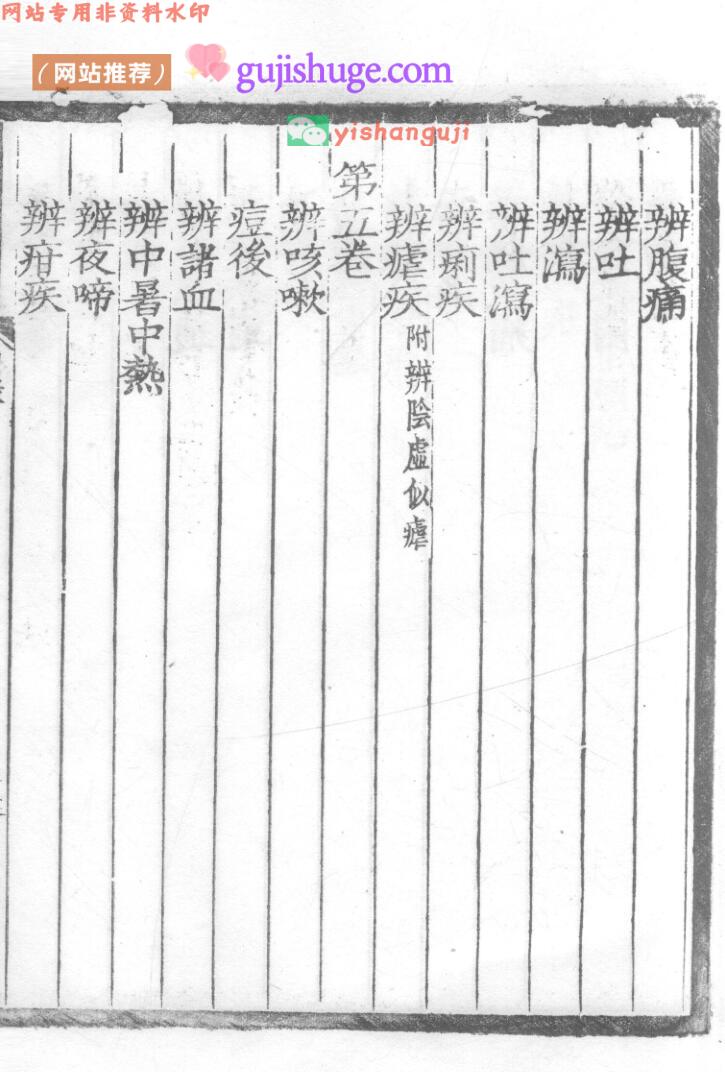 网站专用非资料水印
（网站推荐） gujishuge.com
yishanguji
辨腹痛
辨吐
辨瀉
辨吐瀉
辨痢疾
辨瘧疾附辨陰虛似瘧
第五卷
辨咳嗽
痘後
辨諸血
辨中暑中熱
辨夜啼
辨疳疾